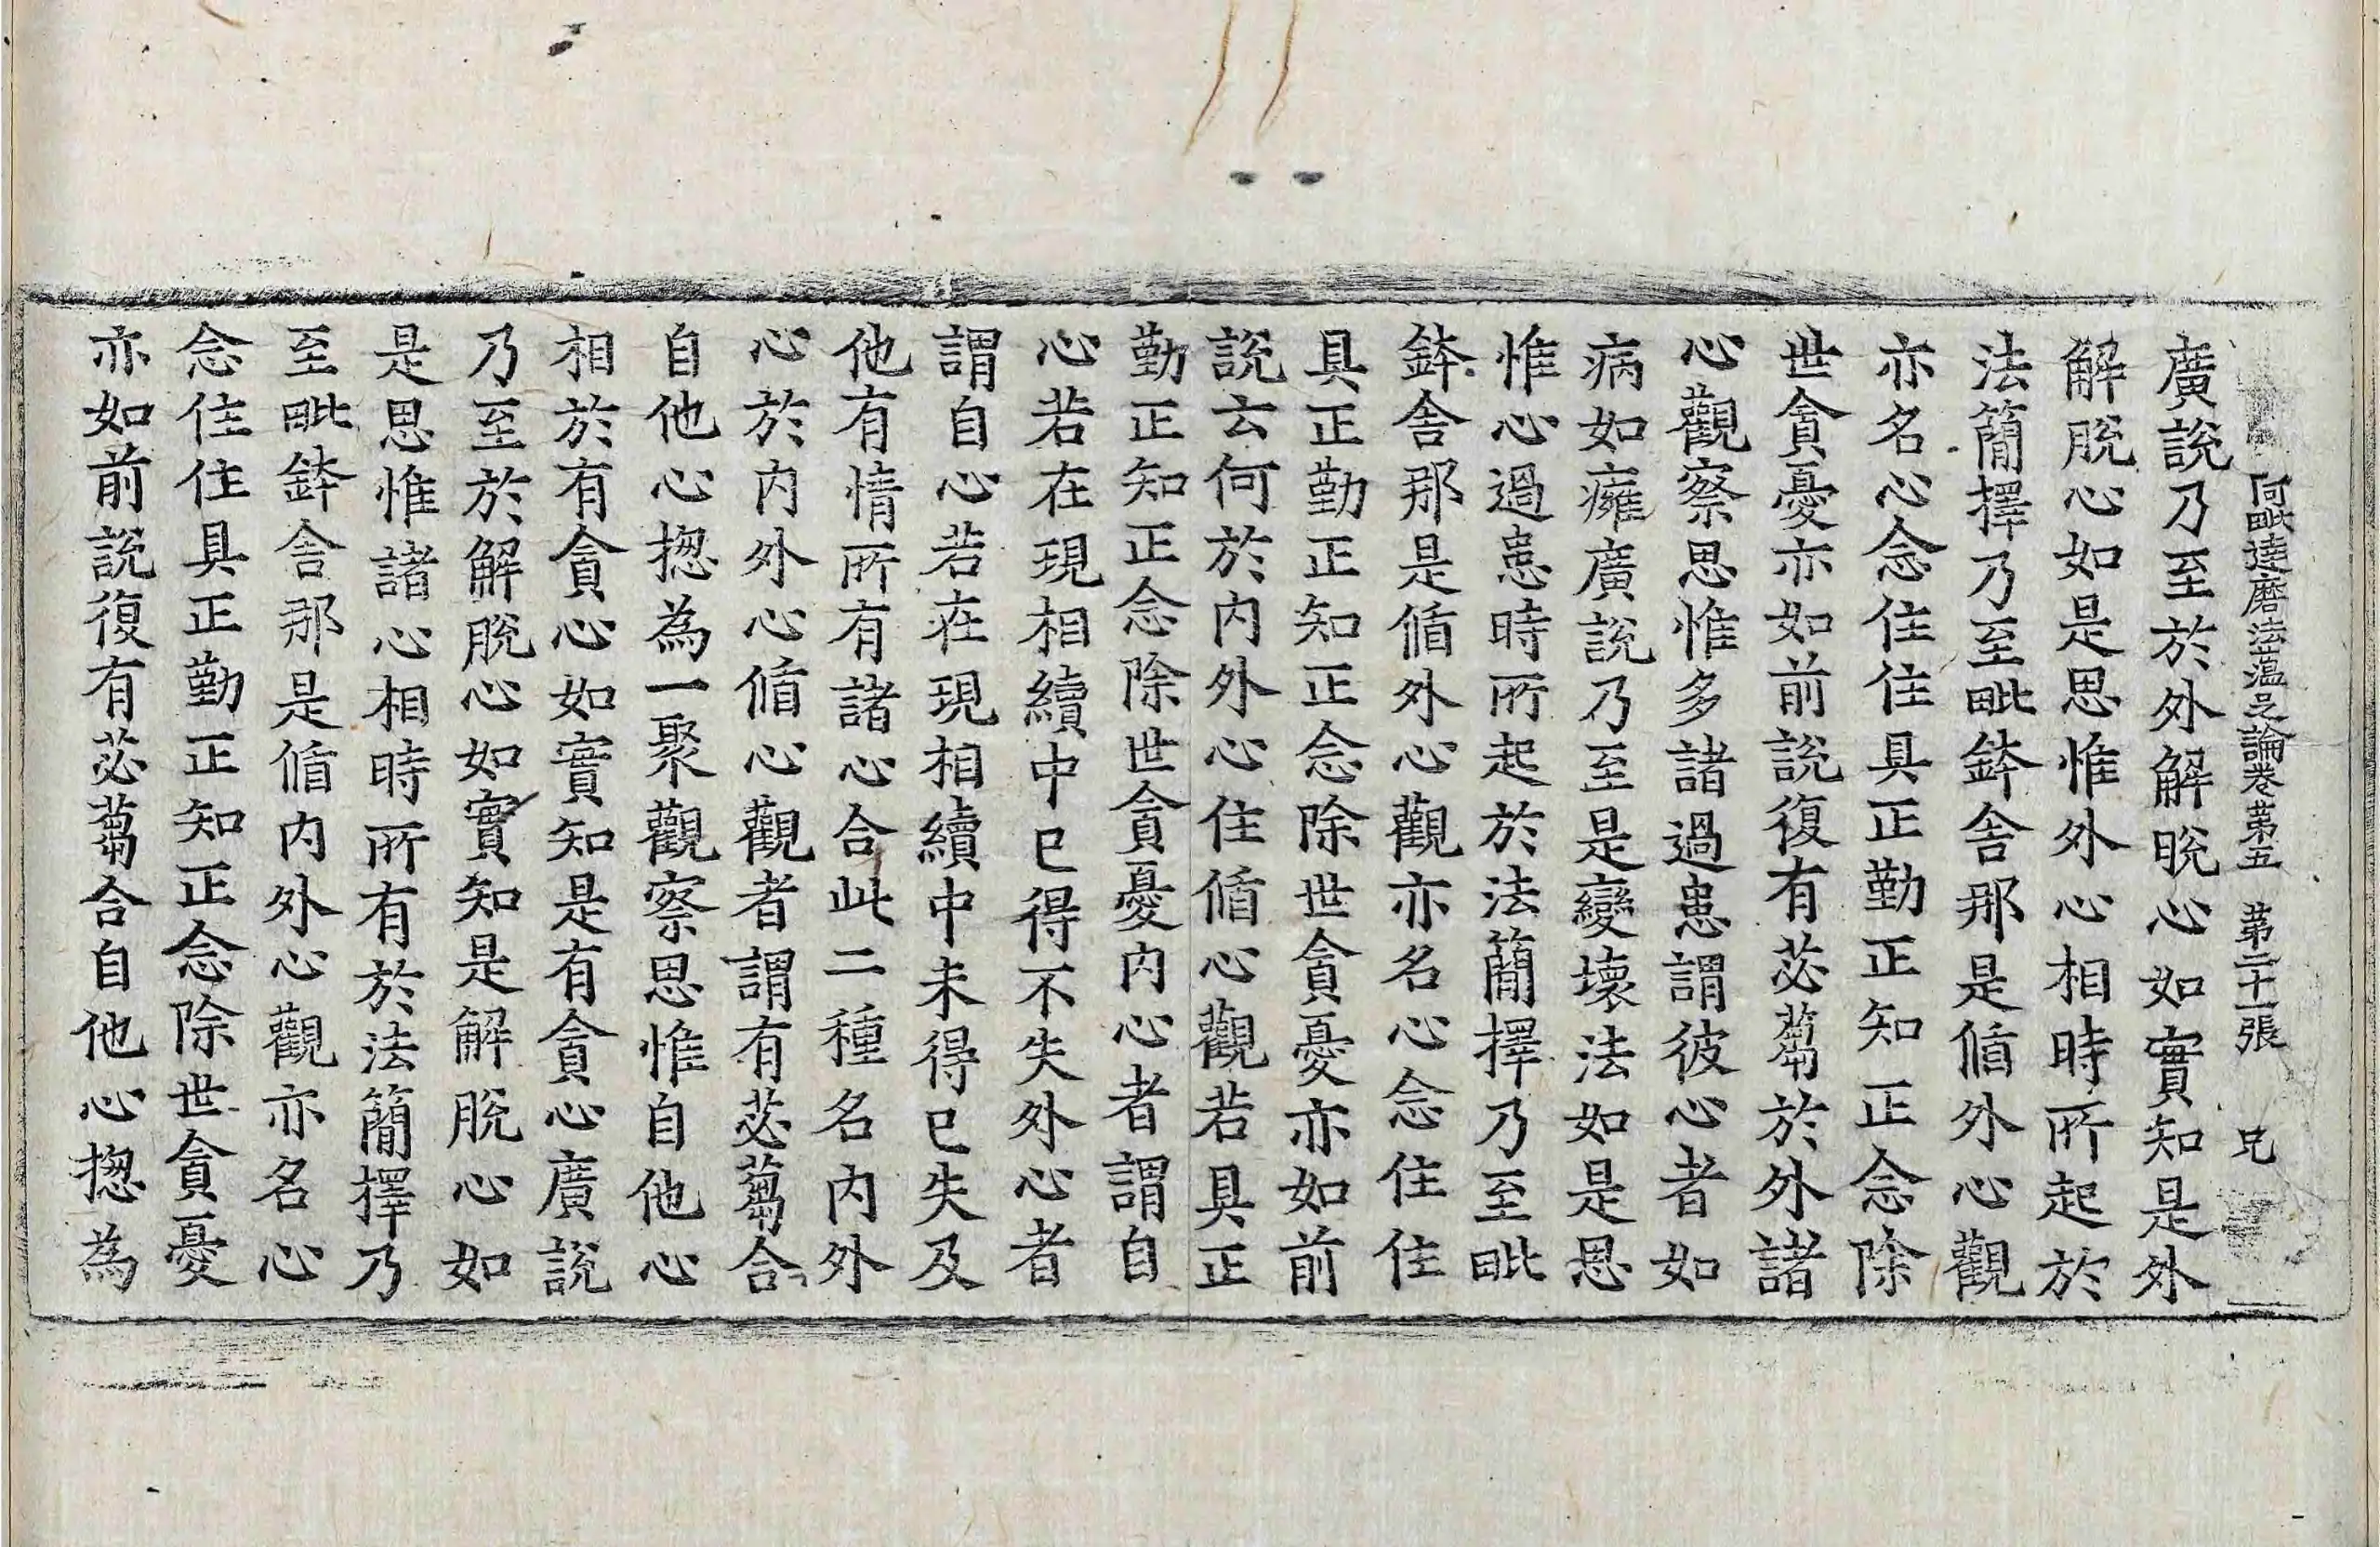 阿毗達磨法蘊足論卷第五 第二十一張 兄
廣說乃至於外解脫心如實知是外
解脫心如是思惟外心相時所起於
法簡擇乃至毗鉢舍那是循外心觀
亦名心念住住具正勤正知正念除
世貪憂亦如前說復有苾蒭於外諸
心觀察思惟多諸過患謂彼心者如
病如癰廣說乃至是變壞法如是思
惟心過患時所起於法簡擇乃至毗
鉢舍那是循外心觀亦名心念住住
具正勤正知正念除世貪憂亦如前
說云何於內外心住循心觀若具正
勤正知正念除世貪憂內心者謂自
心若在現相續中已得不失外心者
謂自心若在現相續中未得已失及
他有情所有諸心合此二種名內外
心於內外心循心觀者謂有苾蒭合
自他心揔為一聚觀察思惟自他心
相於有貪心如實知是有貪心廣說
乃至於解脫心如實知是解脫心如
是思惟諸心相時所有於法簡擇乃
至毗鉢舍那是循內外心觀亦名心
念住住具正勤正知正念除世貪憂
亦如前說復有苾蒭合自他心揔為